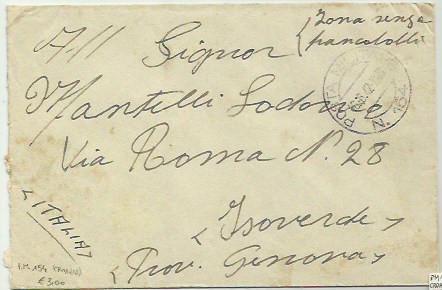 Zona senza
francobolli
All Signor
Mantelli Lodovico
Via Roma N. 28
Isoverde
(ITALIA)
Prov. Genova
P.M. 154
€ 3,00